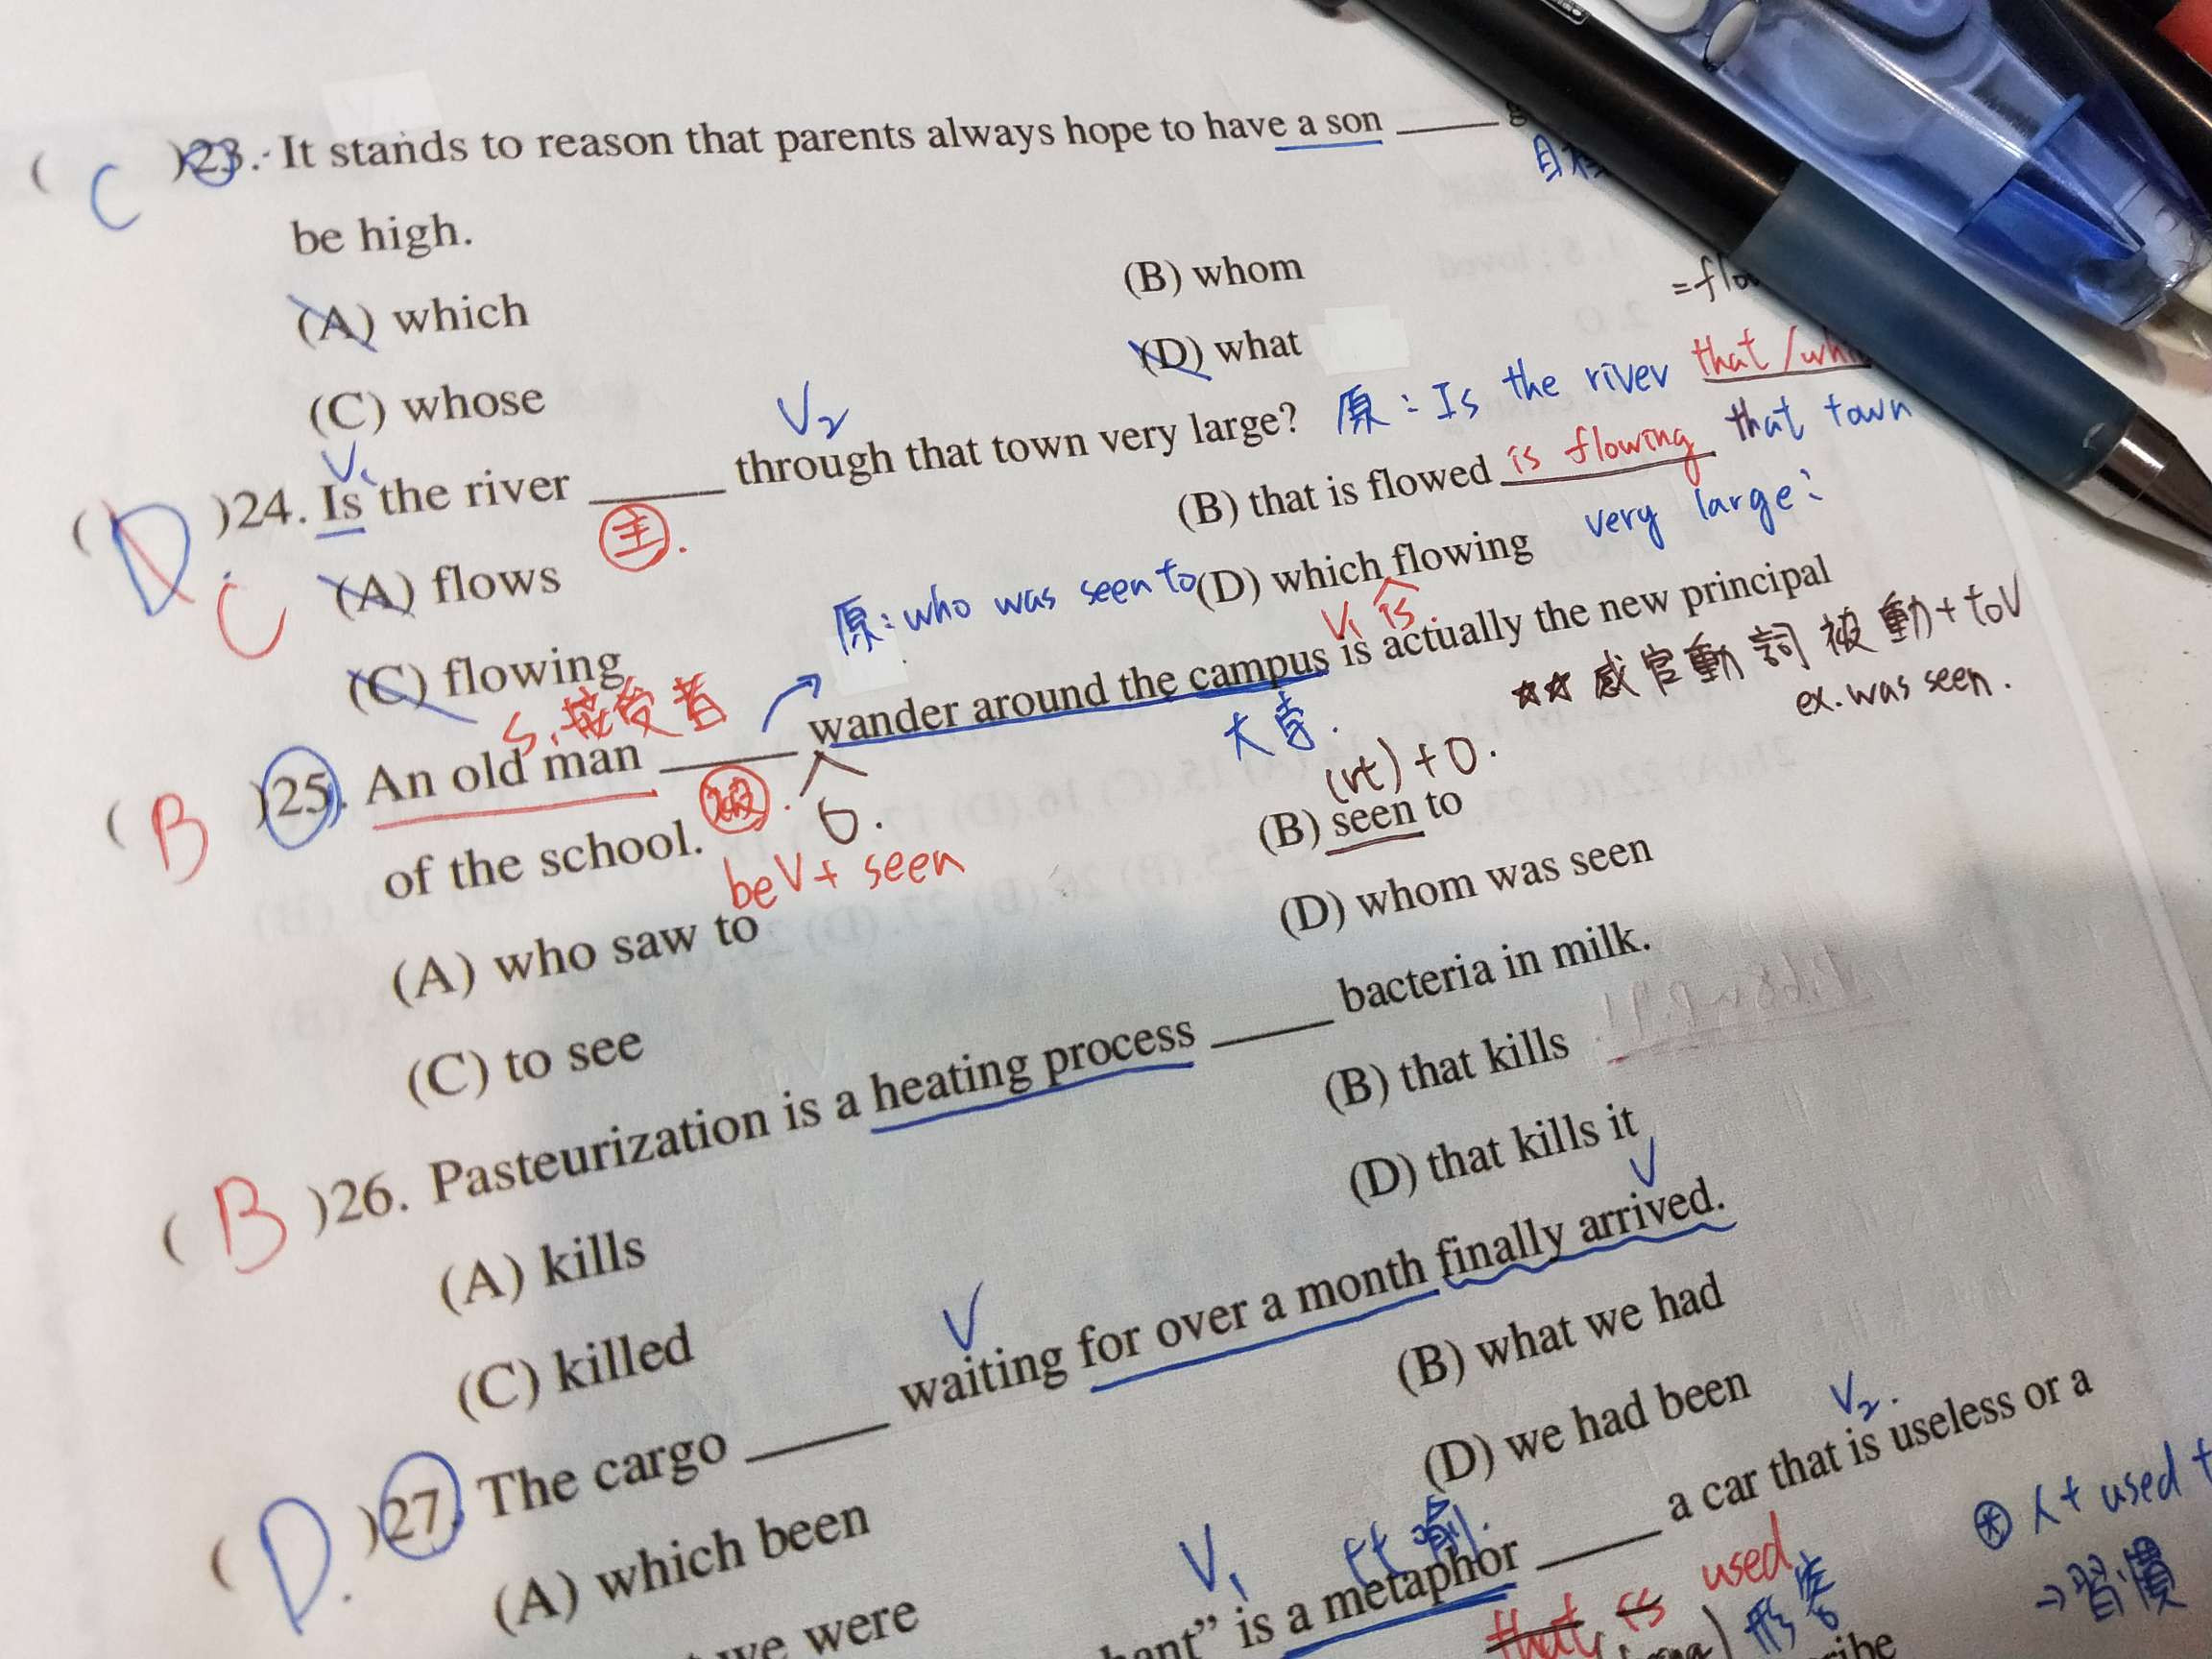 ( C )23. It stands to reason that parents always hope to have a son ____
be high.
(A) which
(B) whom
(C) whose
(D) what
V₁ V₂
( D )24. Is the river ____ through that town very large?
C
主.
原: Is the river that /
is flowing that town
very large?
(A) flows
(B) that is flowed
(C) flowing
(D) which flowing
is
原: who was seen to
S. 接受者
V₁
( B )25. An old man ____ wander around the campus is actually the new principal
of the school.
被.
6.
beV + seen
大學.
(vt) + O.
☆☆ 感官動詞 被動 + to V
ex. was seen.
(A) who saw to
(B) seen to
(C) to see
(D) whom was seen
( B )26. Pasteurization is a heating process ____ bacteria in milk.
(A) kills
(B) that kills
(C) killed
(D) that kills it
V V
( D. )27. The cargo ____ waiting for over a month finally arrived.
(A) which been
(B) what we had
we were
(D) we had been
V₁ V₂.
hant” is a metaphor ____ a car that is useless or a
that is used
形容
人 + used
→ 習慣